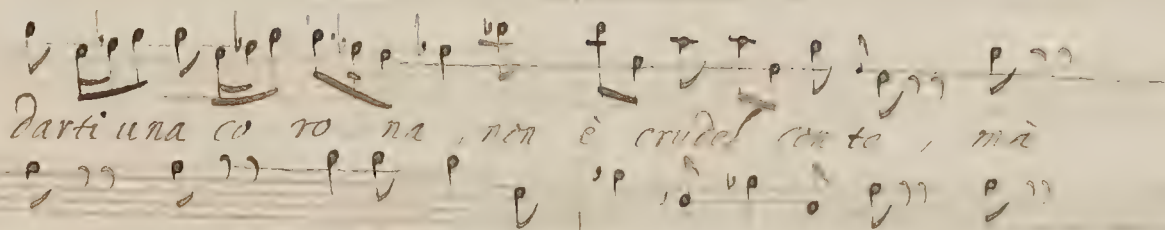 darti una co ro na, non è crudel con te, mà